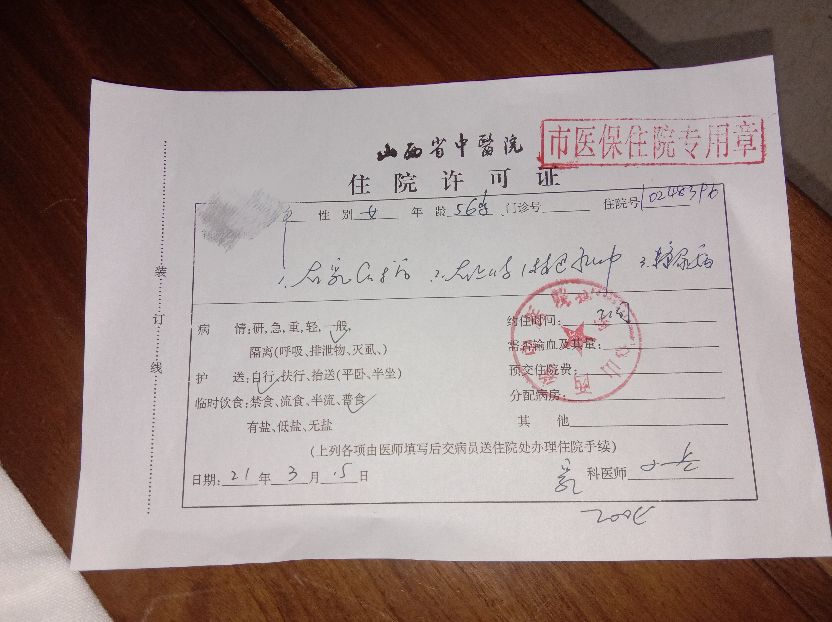 山西省中醫院
市医保住院专用章
住院许可证
性别 女 年龄 56岁 门诊号 住院号
1. 右乳Ca术后 2. 3. 糖尿病
病情:研,急,重,轻,一般, 约住时间:
隔离(呼吸、排泄物、灭虱、) 需否输血及其量:
护送:自行,扶行、抬送(平卧、半坐) 预交住院费:
临时饮食:禁食、流食、半流、普食 分配病房:
有盐、低盐、无盐 其他
(上列各项由医师填写后交病员送住院处办理住院手续)
日期: 21 年 3 月 15 日 乳 科医师
装订线